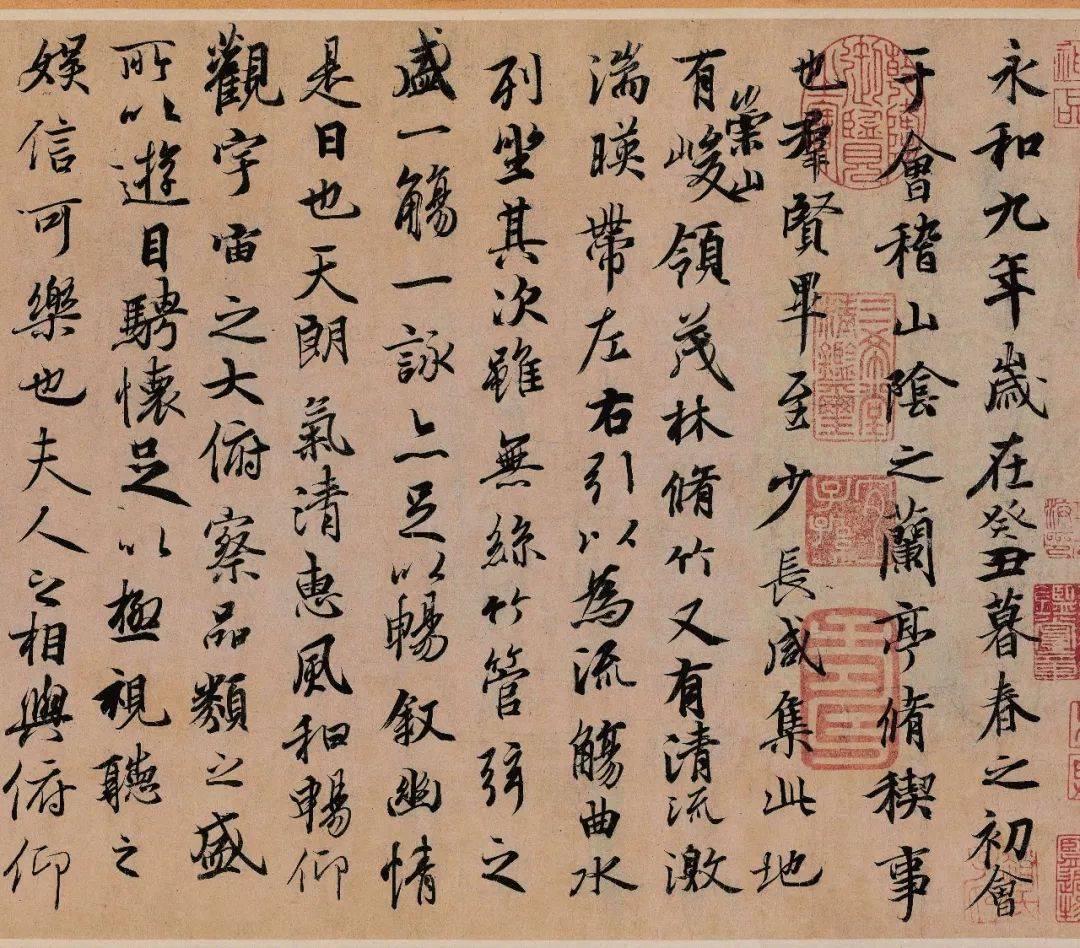 神品
永和九年歲在癸丑暮春之初會
于會稽山陰之蘭亭脩禊事
也羣賢畢至少長咸集此地
三希堂精鑑璽
有崇山峻領茂林脩竹又有清流激
湍暎帶左右引以為流觴曲水
列坐其次雖無絲竹管弦之
盛一觴一詠亦足以暢敘幽情
是日也天朗氣清惠風和暢仰
觀宇宙之大俯察品類之盛
所以遊目騁懷足以極視聽之
娛信可樂也夫人之相與俯仰